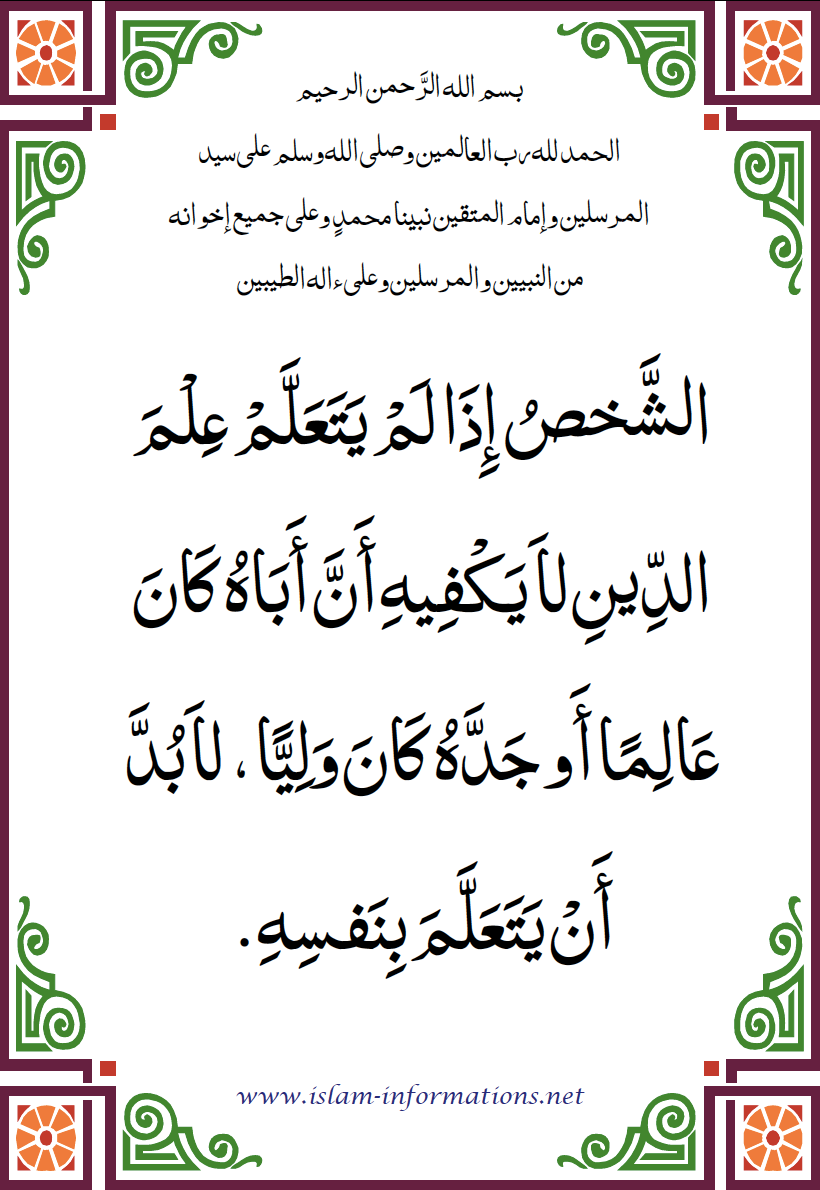 بسم الله الرَّحمن الرحيم
الحمد لله رب العالمين وصلى الله وسلم على سيد
المرسلين وإمام المتقين نبينا محمدٍ وعلى جميع إخوانه
من النبيين والمرسلين وعلى ءاله الطيبين
الشَّخصُ إِذَا لَمْ يَتَعَلَّمْ عِلْمَ
الدِّينِ لاَ يَكْفِيهِ أَنَّ أَبَاهُ كَانَ
عَالِمًا أَو جَدَّهُ كَانَ وَلِيًّا، لاَ بُدَّ
أَنْ يَتَعَلَّمَ بِنَفسِهِ.
www.islam-informations.net